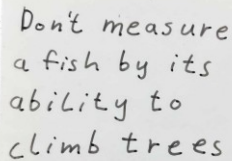 Don't measure
a fish by its
ability to
climb trees